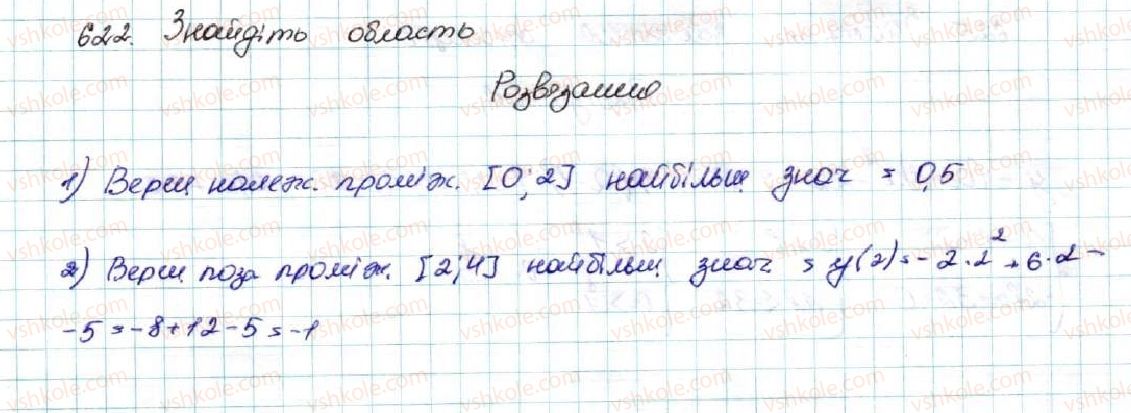 622. Знайдіть область
Розвязання
1) Верш належ. проміж. [0;2] найбільш знач = 0,5
2) Верш поза проміж. [2;4] найбільш знач = y(2) = -2·2² + 6·2 -
-5 = -8+12-5 = -1